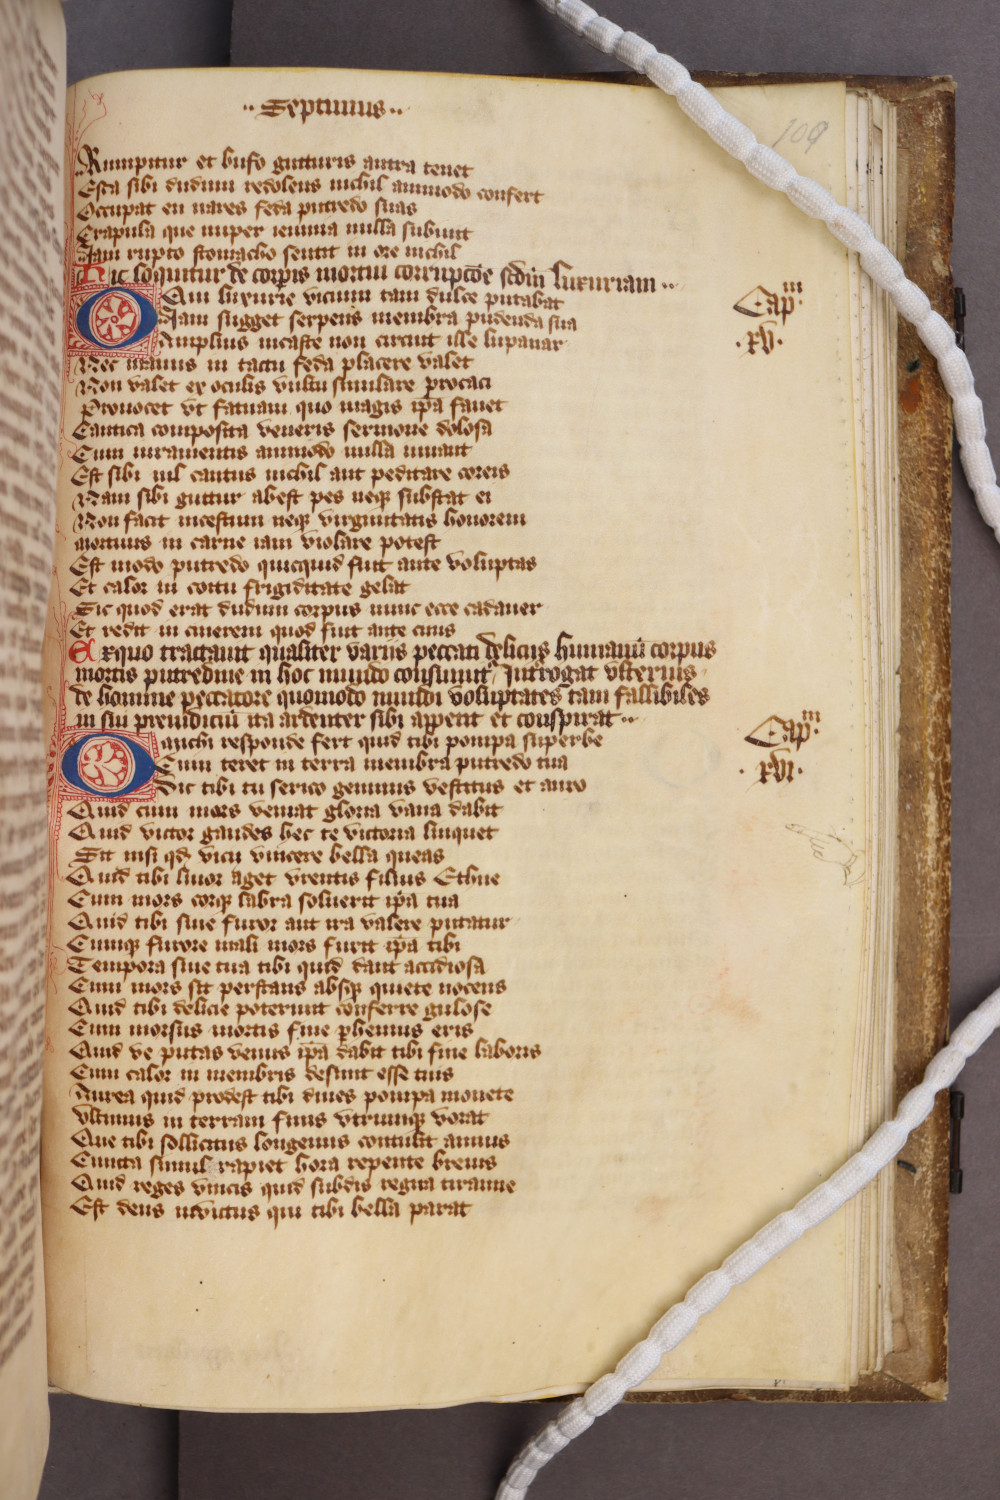 ·· Septimus ··
109
Rumpitur et bufo gutturis antra tenet
Esca sibi dudum redolens nichil ammodo confert
Occupat en nares feda putredo suas
Crapula que nuper ieiunia nulla subiuit
Iam rupto stomacho sentit in ore nichil
Hic loquitur de corꝑis mortui corrupcōe scdm luxuriam ··
Qui luxurie vicium tam dulce putabat
Capm
Iam sugget serpens membra pudenda sua
·xv·
Amplius incaste non circuit ille lupanar
Nec manus in tactu feda placere valet
Non valet ex oculis vultu simulare procaci
Prouocet vt fatuam quo magis ipa fauet
Cantica composita veneris sermone dolosa
Cum iuramentis ammodo nulla iuuant
Est sibi nil cantus nichil aut peditare coreis
Nam sibi guttur abest pes neqꝫ substat ei
Non facit incestum neqꝫ virginitatis honorem
mortuus in carne iam violare potest
Est modo putredo quicquid fuit ante voluptas
Et calor in coitu frigiditate gelat
Sic quod erat dudum corpus nunc ecce cadauer
Et redit in cinerem quod fuit ante cinis
Exquo tractauit qualiter variis peccati deliciis humanū corpus
mortis putredine in hoc mundo consumit᷑ Int᷑rogat vlterius
de homine peccatore quomodo mundi voluptates tam fallibiles
in sui preiudiciū ita ardenter sibi appetit et conspirat ··
Quichi responde fert quid tibi pompa superbe
Capm
Cum teret in terra membra putredo tua
·xvi·
Dic tibi tu serico gemmis vestitus et auro
Quid cum mors veniat gloria vana dabit
Quid victor gaudes hec te victoria linquet
Sit nisi qd vicii vincere bella queas
Quid tibi liuor aget vrentis filius Ethne
Cum mors corqꝫ labra soluerit ipa tua
Quid tibi siue furor aut ira valere putatur
Cumqꝫ furore mali mors furit ipa tibi
Tempora siue tua tibi quid dant accidiosa
Cum mors sit perstans absqꝫ quiete nocens
Quid tibi delicie poterunt conferre gulose
Cum morsus mortis fine ꝑhennis eris
Quid ve putas venus ipa dabit tibi fine laboris
Cum calor in membris desinit esse tuis
Aurea quid prodest tibi diues pompa monete
vltimus in terram finis vtrumqꝫ vorat
Que tibi sollicitus longeuus contulit annus
Cuncta simul rapiet hora repente breuis
Quid reges vincis quid subdis regna tiranne
Est deus inuictus qui tibi bella parat